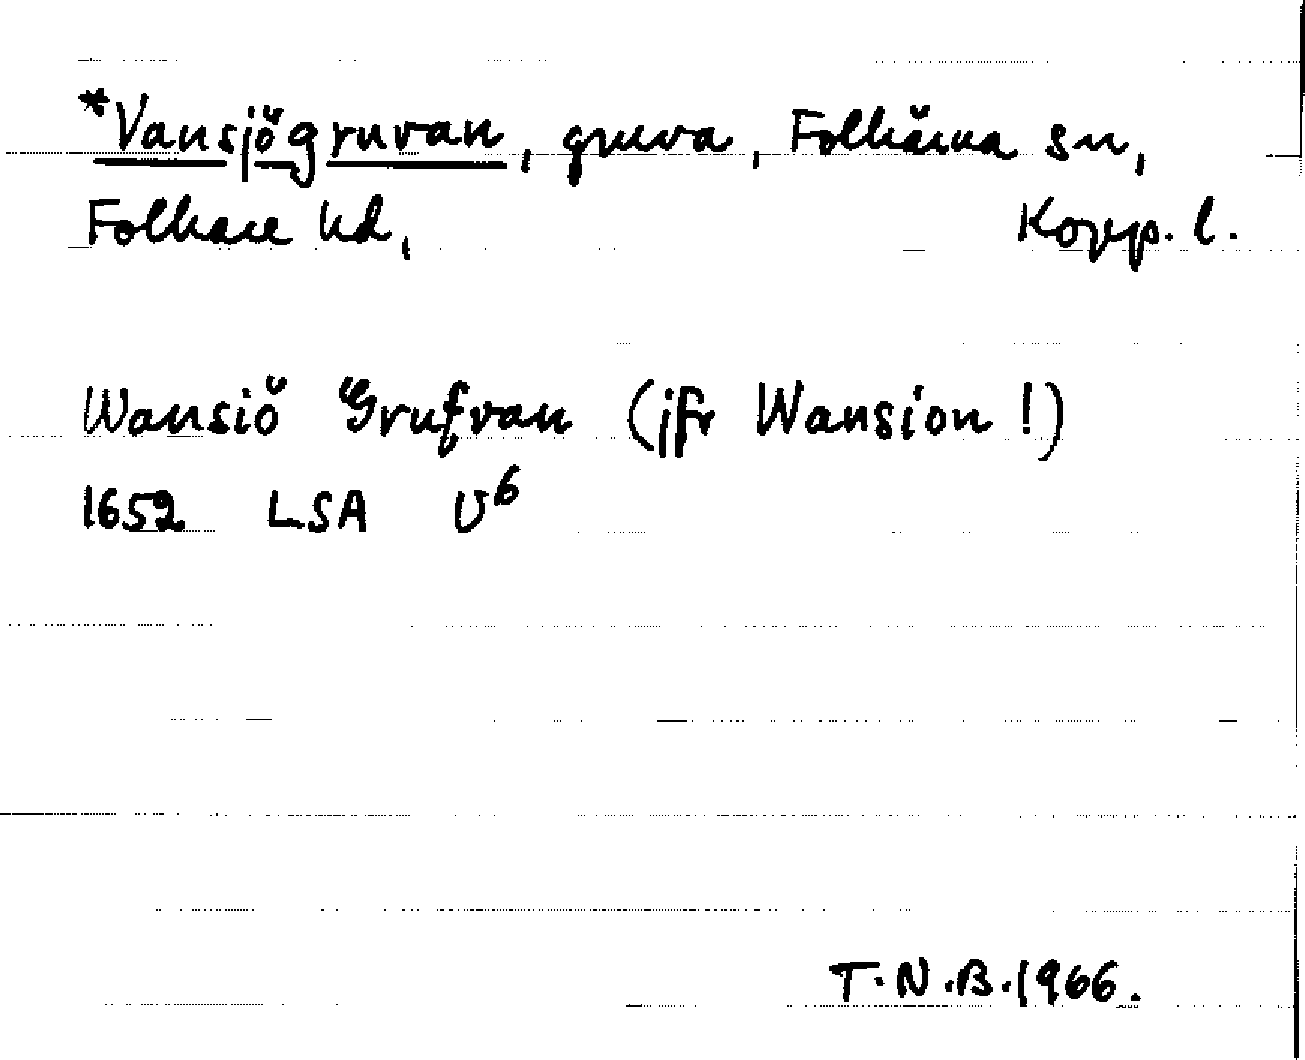 *Vansjögruvan, gruva, Folkärna sn,
Folkare hd, Kopp. l.
Wansiö Grufvan (jfr Wansion!)
1652 LSA U⁶
T.N.B.1966.